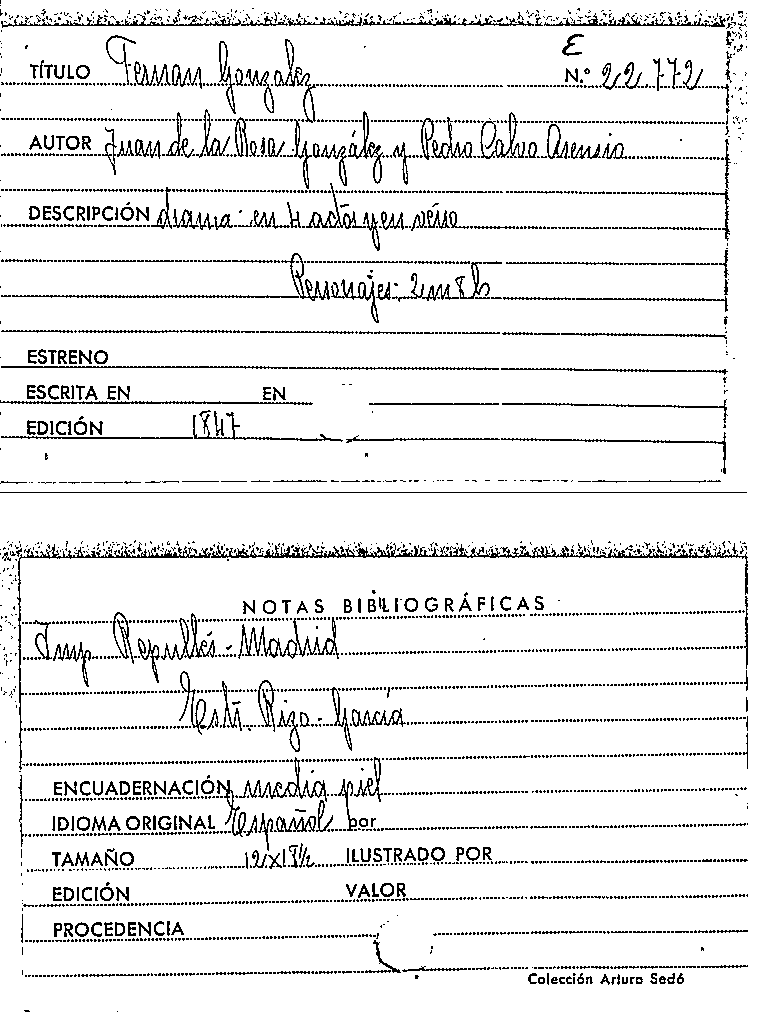 E
TÍTULO Fernan González N.º 22.772
AUTOR Juan de la Rosa González y Pedro Calvo Asensio
DESCRIPCIÓN drama en 4 actos y en verso
Personajes: 2m 8h
ESTRENO
ESCRITA EN EN
EDICIÓN 1847
NOTAS BIBLIOGRÁFICAS
Imp Repullés - Madrid
Estr. Rizo - García
ENCUADERNACIÓN media piel
IDIOMA ORIGINAL Español por
TAMAÑO 12x18½ ILUSTRADO POR
EDICIÓN VALOR
PROCEDENCIA
Colección Arturo Sedó